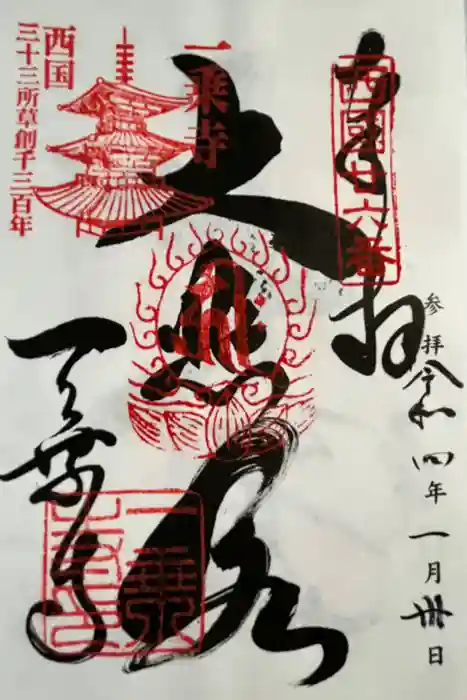 奉拝
西國廿六番
参拝
令和四年一月卅日
大悲殿
一乗寺
一乗寺
西国
三十三所草創千三百年